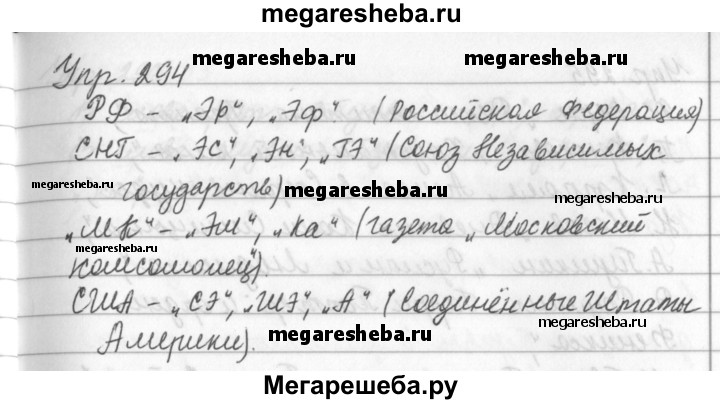 megaresheba.ru
Упр. 294
megaresheba.ru megaresheba.ru
РФ – „Эр“, „Эф“ (Российская Федерация)
СНГ – „Эс“, „Эн“, „ГЭ“ (Союз Независимых
megaresheba.ru государств) megaresheba.ru
„МК“ – „Эм“, „Ка“ (газета „Московский
megaresheba.ru
комсомолец“).
США – „СЭ“, „ШЭ“, „А“ (Соединённые Штаты
megaresheba.ru
Америки). megaresheba.ru
Мегарешеба.ру